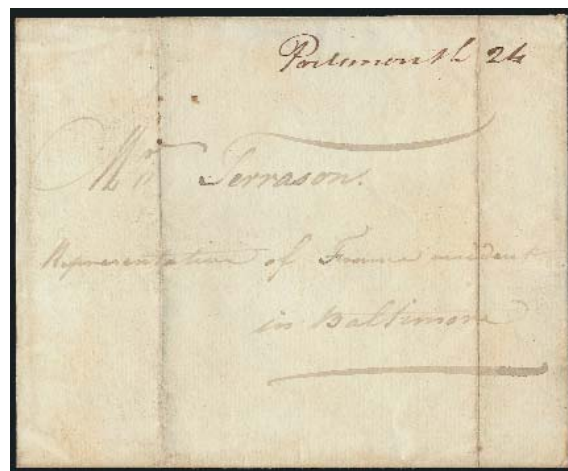 Portsmouth 24
Mr. Terrason.
Representative of France resident
in Baltimore